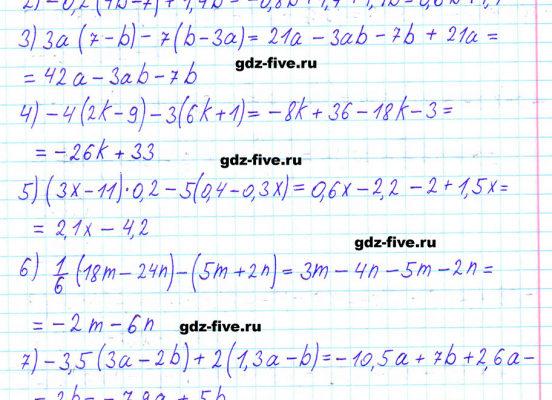 2) -0,2(4b-7)+1,4b = -0,8b+1,4+1,4b = 0,6b+1,4
3) 3a (7-b) - 7(b-3a) = 21a - 3ab - 7b + 21a =
= 42a - 3ab - 7b
gdz-five.ru
4) -4(2k-9) - 3(6k+1) = -8k + 36 - 18k - 3 =
= -26k + 33
gdz-five.ru
5) (3x-11)·0,2 - 5(0,4-0,3x) = 0,6x - 2,2 - 2 + 1,5x =
= 2,1x - 4,2
gdz-five.ru
6) 1/6 (18m - 24n) - (5m + 2n) = 3m - 4n - 5m - 2n =
= -2m - 6n
gdz-five.ru
7) -3,5(3a - 2b) + 2(1,3a - b) = -10,5a + 7b + 2,6a -
- 2b = -7,9a + 5b